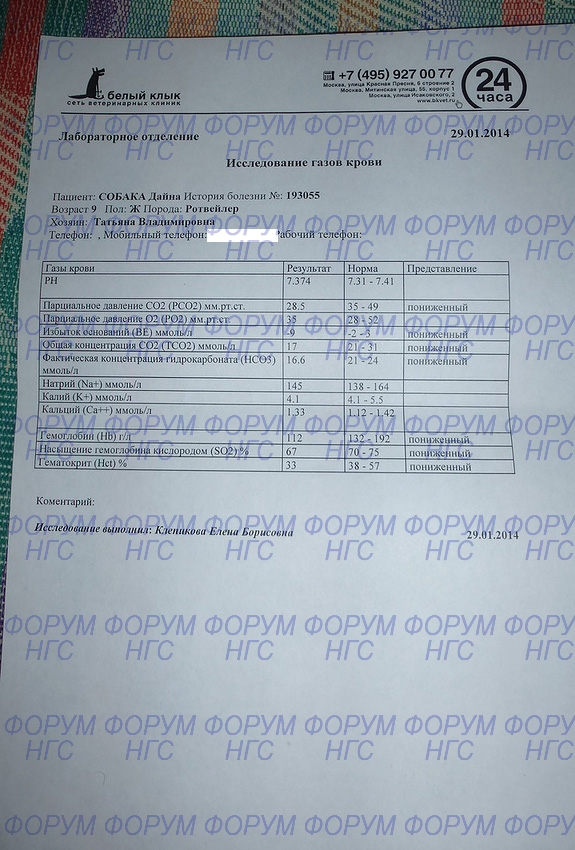 ФОРУМ ФОРУМ ФОРУМ ФОРУМ ФОРУМ ФОРУМ
НГС НГС НГС НГС НГС
белый клык
сеть ветеринарных клиник
+7 (495) 927 00 77
Москва, улица Красная Пресня, 6 строение 2
Москва, Митинская улица, 55, корпус 1
Москва, улица Исаковского, 2
www.bkvet.ru
24
часа
Лабораторное отделение
29.01.2014
Исследование газов крови
Пациент: СОБАКА Дайна История болезни №: 193055
Возраст 9 Пол: Ж Порода: Ротвейлер
Хозяин: Татьяна Владимировна
Телефон: , Мобильный телефон: Рабочий телефон:
Газы крови Результат Норма Представление
PH 7.374 7.31 - 7.41
Парциальное давление CO2 (PCO2) мм.рт.ст. 28.5 35 - 49 пониженный
Парциальное давление O2 (PO2) мм.рт.ст. 35 28 - 52
Избыток оснований (BE) ммоль/л -9 -2 - 3 пониженный
Общая концентрация CO2 (TCO2) ммоль/л 17 21 - 31 пониженный
Фактическая концентрация гидрокарбоната (HCO3) 16.6 21 - 24 пониженный
ммоль/л
Натрий (Na+) ммоль/л 145 138 - 164
Калий (K+) ммоль/л 4.1 4.1 - 5.5
Кальций (Ca++) ммоль/л 1.33 1.12 - 1.42
Гемоглобин (Hb) г/л 112 132 - 192 пониженный
Насыщение гемоглобина кислородом (SO2) % 67 70 - 75 пониженный
Гематокрит (Hct) % 33 38 - 57 пониженный
Коментарий:
Исследование выполнил: Клепикова Елена Борисовна
29.01.2014